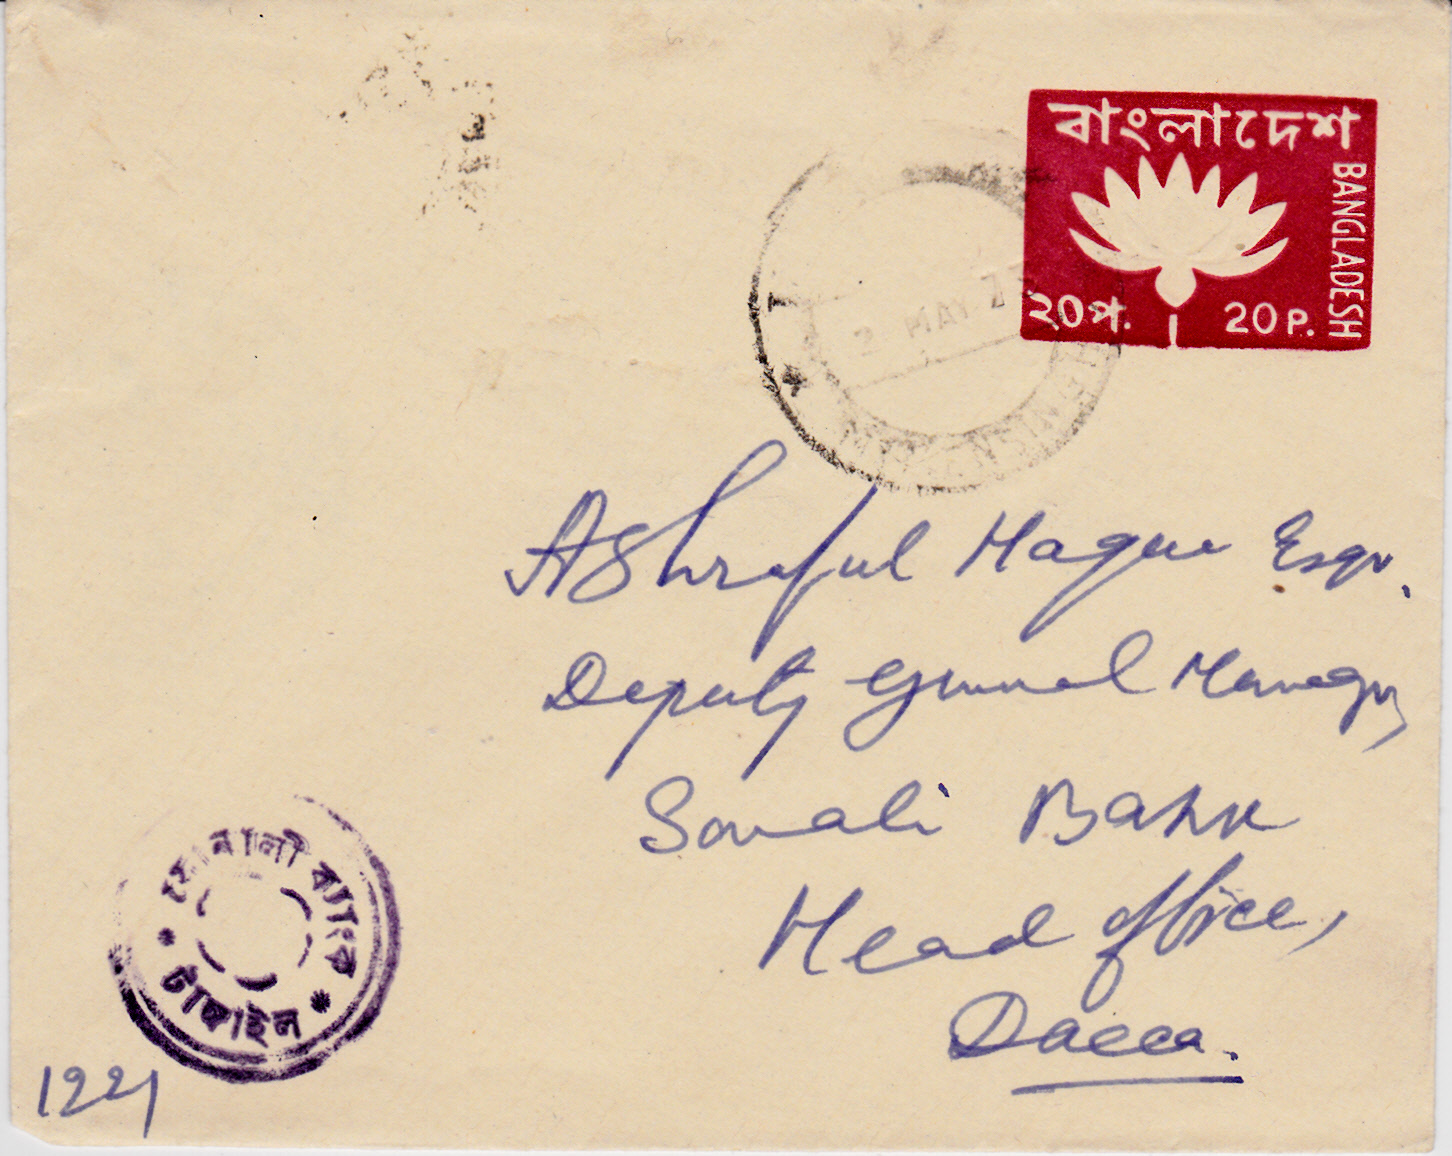 বাংলাদেশ
BANGLADESH
২০প. 20 P.
2 MAY 7
Ashraful Haque Esqr.
Deputy General Manager,
Sonali Bank
Head Office,
Dacca.
সোনালী ব্যাংক
* টাঙ্গাইল *
1221